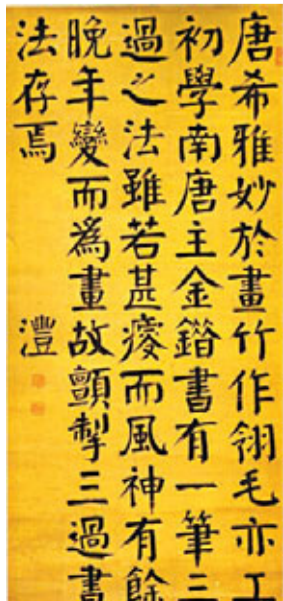 唐希雅妙於畫竹作翎毛亦工
初學南唐主金錯書有一筆三
過之法雖若甚瘦而風神有餘
晚年變而為畫故顫掣三過書
法存焉
澧